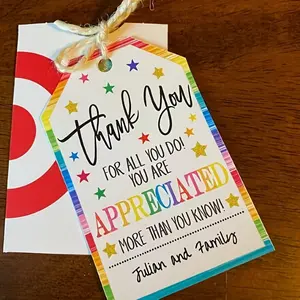 Thank You
FOR ALL YOU DO!
YOU ARE
APPRECIATED
MORE THAN YOU KNOW!
Julian and Family